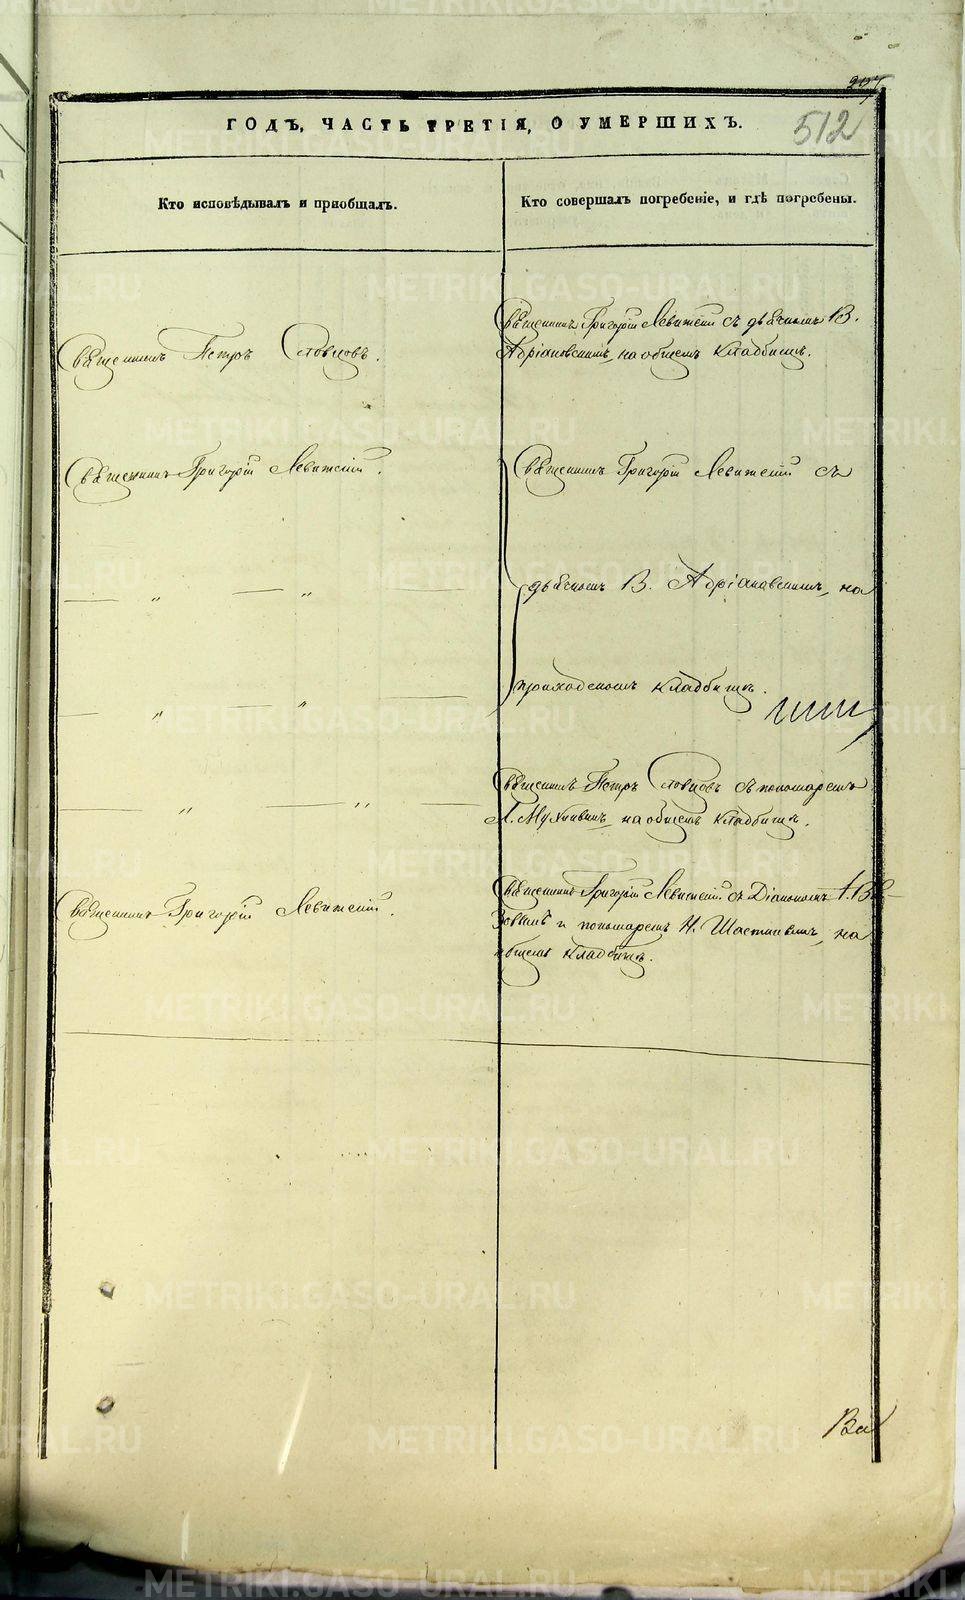 512
ГОДЪ, ЧАСТЬ ТРЕТІЯ, О УМЕРШИХЪ.
Кто исповѣдывалъ и пріобщалъ.
Кто совершалъ погребеніе, и гдѣ погребены.
Священникъ Петръ Словцовъ.
Священникъ Григорій Левитскій съ дьячкомъ В.
Адріановскимъ, на общемъ кладбищѣ.
Священникъ Григорій Левитскій.
Священникъ Григорій Левитскій съ
— „ — „ —
дьячкомъ В. Адріановскимъ, на
— „ — „ —
приходскомъ кладбищѣ.
— „ — „ —
Священникъ Петръ Словцовъ съ пономаремъ
на общемъ кладбищѣ.
Священникъ Григорій Левитскій.
Священникъ Григорій Левитскій съ Діакономъ
и пономаремъ Н. на
общемъ кладбищѣ.
METRIKI.GASO-URAL.RU